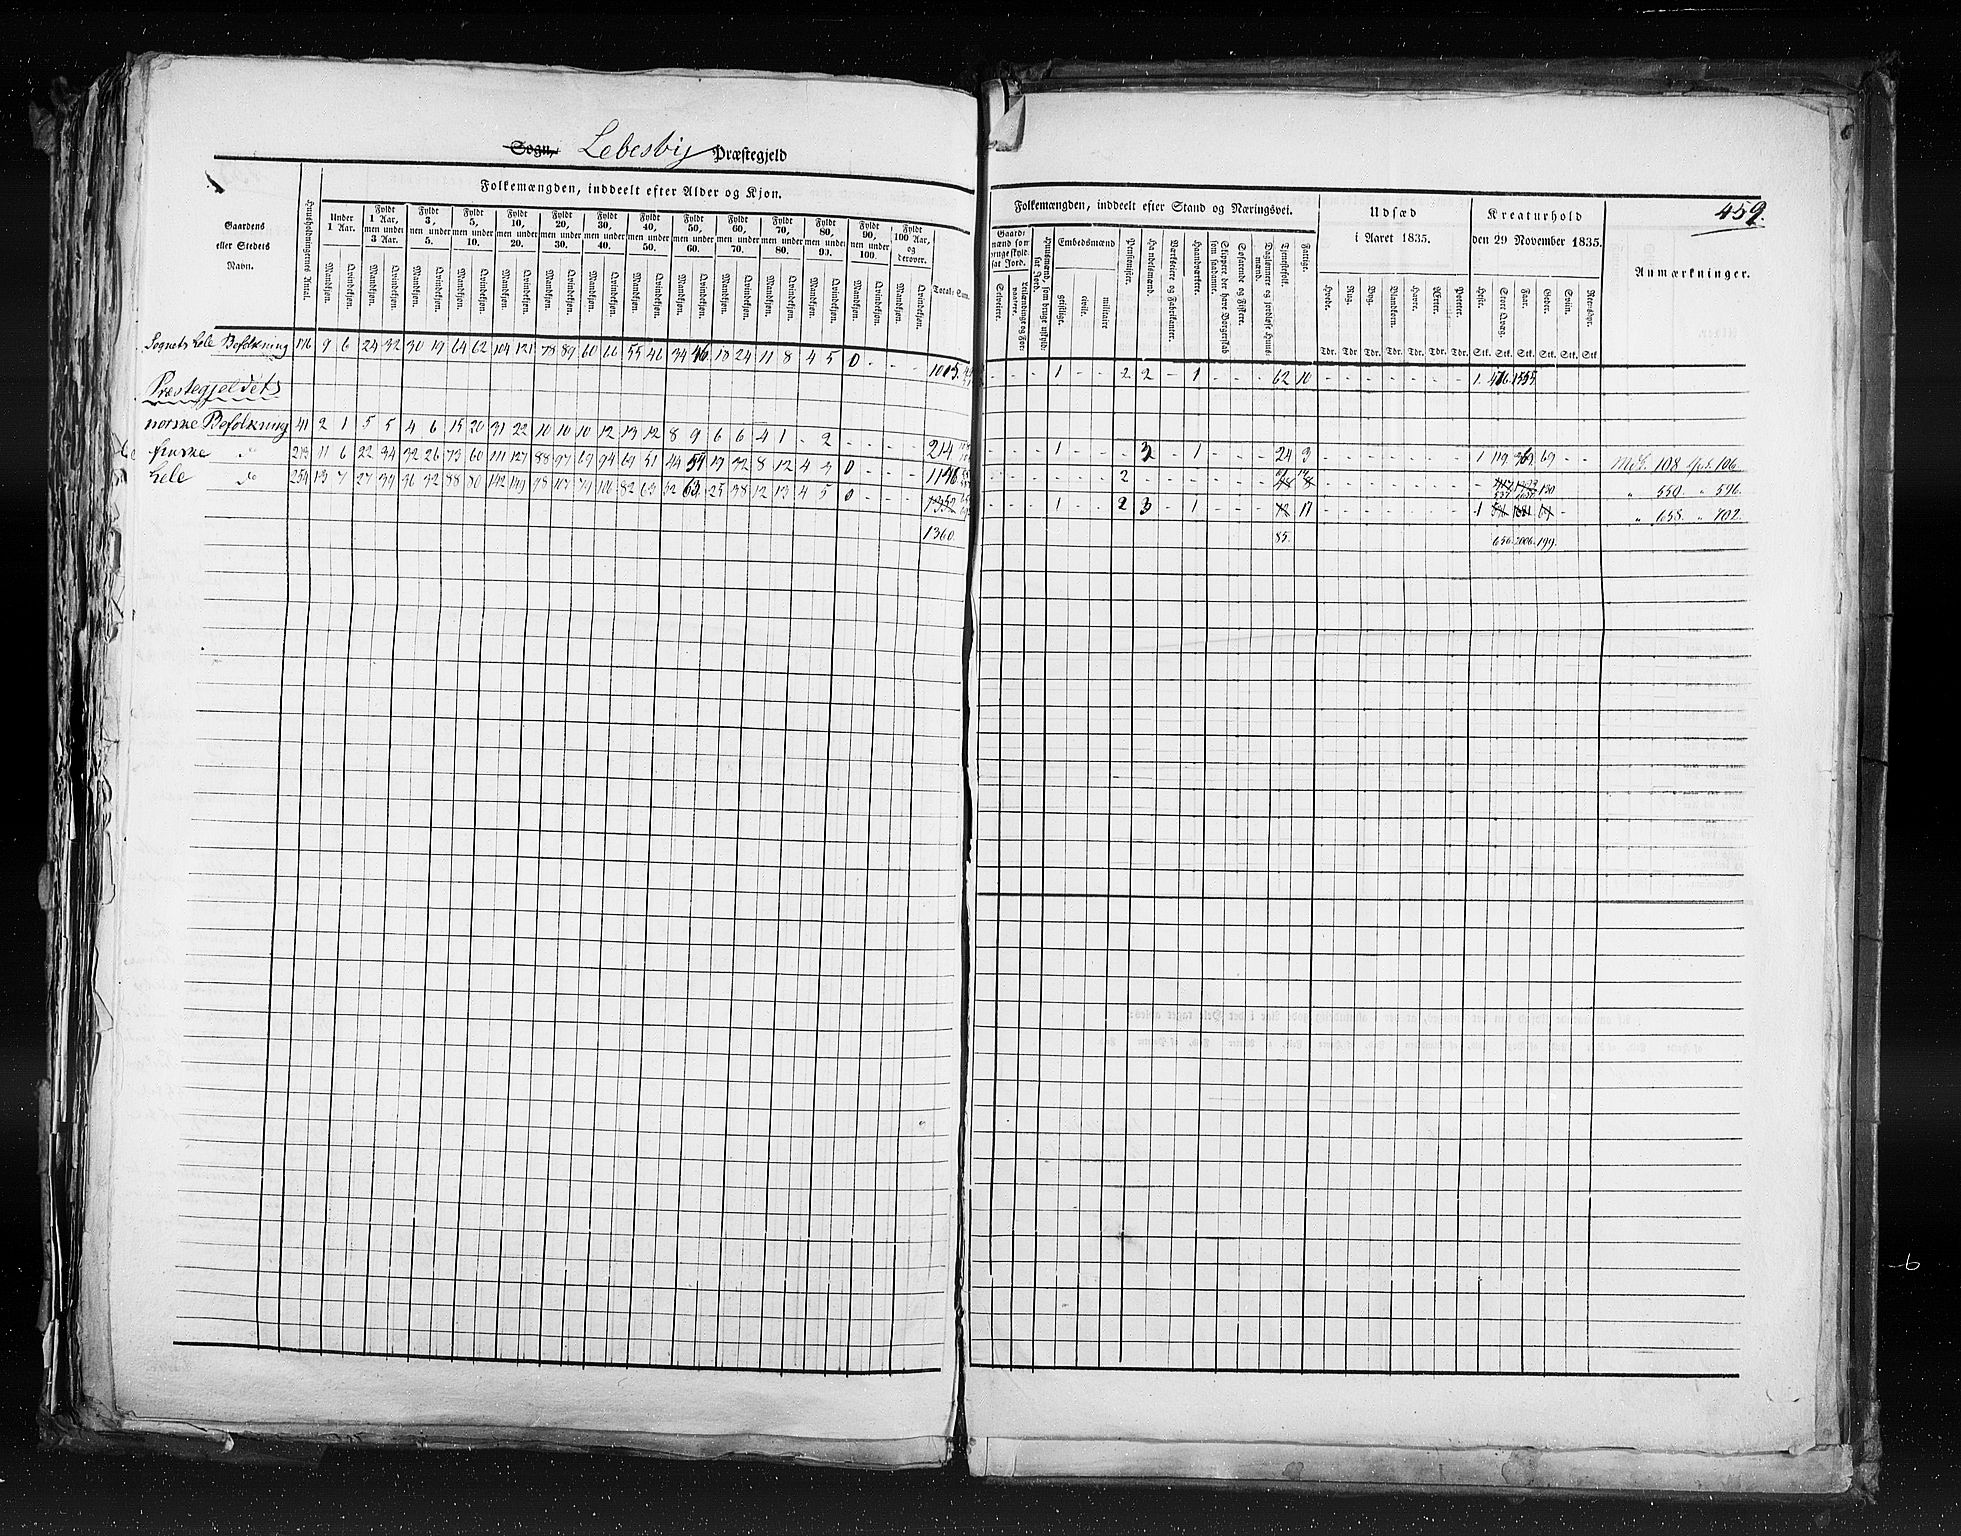 Sogn, Lebesby Præstegjeld
459.
Gaardens eller Stedets Navn.
Huusholdningernes Antal.
Folkemængden, inddeelt efter Alder og Kjøn.
Under 1 Aar.
Fyldt 1 Aar, men under 3 Aar.
Fyldt 3, men under 5.
Fyldt 5, men under 10.
Fyldt 10, men under 20.
Fyldt 20, men under 30.
Fyldt 30, men under 40.
Fyldt 40, men under 50.
Fyldt 50, men under 60.
Fyldt 60, men under 70.
Fyldt 70, men under 80.
Fyldt 80, men under 90.
Fyldt 90, men under 100.
Fyldt 100 Aar, og derover.
Mandkjøn. Qvindekjøn.
Total: Sum.
Folkemængden, inddeelt efter Stand og Næringsvei.
Gaardmænd som bruge skyldsat Jord.
Selveiere.
Leilændinge og Forpagtere.
Huusmænd, som bruge uskyldsat Jord.
Embedsmænd
geistlige. civile. militaire
Pensionister.
Handelsmænd.
Værkseiere og Fabrikanter.
Haandværkere.
Skippere der have Borgerskab som saadanne.
Søfarende og Fiskere.
Daglønnere og jordløse Huusmænd.
Tjenestefolk.
Fattige.
Udsæd i Aaret 1835.
Hvede. Rug. Byg. Blandkorn. Havre. Ærter. Poteter.
Tdr. Tdr Tdr. Tdr. Tdr. Tdr. Tdr.
Kreaturhold den 29 November 1835.
Heste. Stort Qvæg. Faar. Geder. Sviin. Rensdyr.
Stk. Stk. Stk. Stk. Stk. Stk
Anmærkninger.
Sognets hele Befolkning 176 9 6 24 32 30 19 64 62 104 121 78 89 60 66 55 46 34 36 18 24 11 8 4 5 0 - - - 1005
- - - 1 - - 2 2 - 1 - - - 62 10 - - - - - - - 1. 476. 1535
Præstegjeldets
norske Befolkning 41 2 1 5 5 4 6 15 20 31 22 10 10 10 12 13 12 8 9 6 6 4 1 - 2 - - - - 214
- - - 1 - - - 3 - 1 - - - 24 3 - - - - - - - 1 119. 369. 69 - - Mdk. 108. Qvk. 106.
finske do 213 11 6 22 34 32 26 73 60 111 127 88 97 69 94 69 51 44 54 19 32 8 12 4 3 0 - - - 1146
2 130 " 550. " 596.
hele do 254 13 7 27 39 36 32 88 80 142 149 98 107 79 106 82 63 52 63 25 38 12 13 4 5 0 - - - 1352
- - - 1 - - 2 3 - 1 - - - 72 11 - - - - - - - 1 " 658. " 702.
1360.
85. 656. 2006. 199.
6